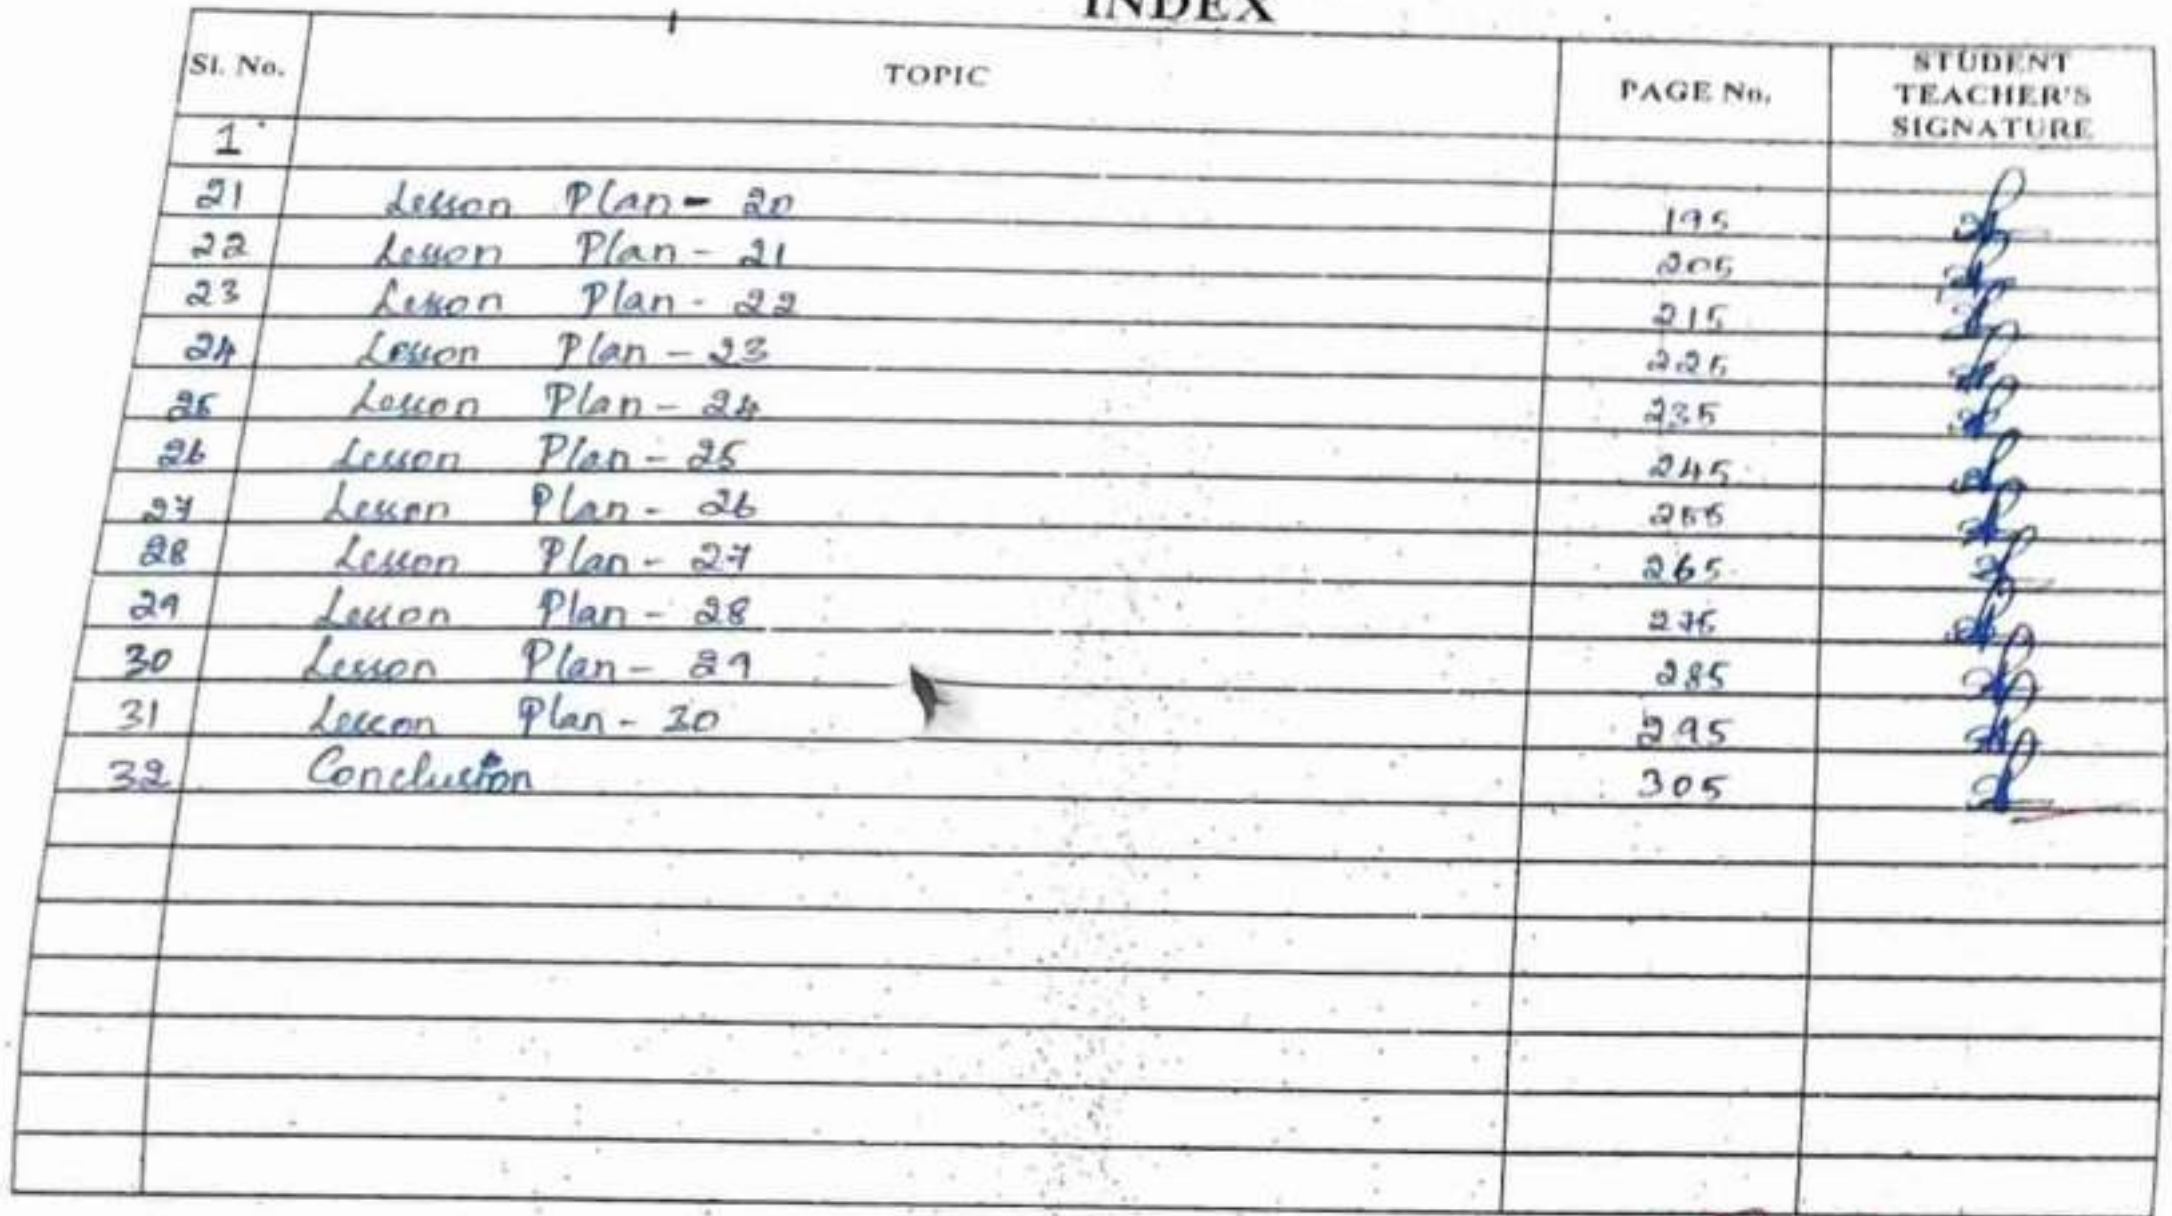 INDEX
Sl. No. TOPIC PAGE No. STUDENT TEACHER'S SIGNATURE
1
21 Lesson Plan - 20 195
22 Lesson Plan - 21 205
23 Lesson Plan - 22 215
24 Lesson Plan - 23 225
25 Lesson Plan - 24 235
26 Lesson Plan - 25 245
27 Lesson Plan - 26 255
28 Lesson Plan - 27 265
29 Lesson Plan - 28 275
30 Lesson Plan - 29 285
31 Lesson Plan - 30 295
32 Conclusion 305